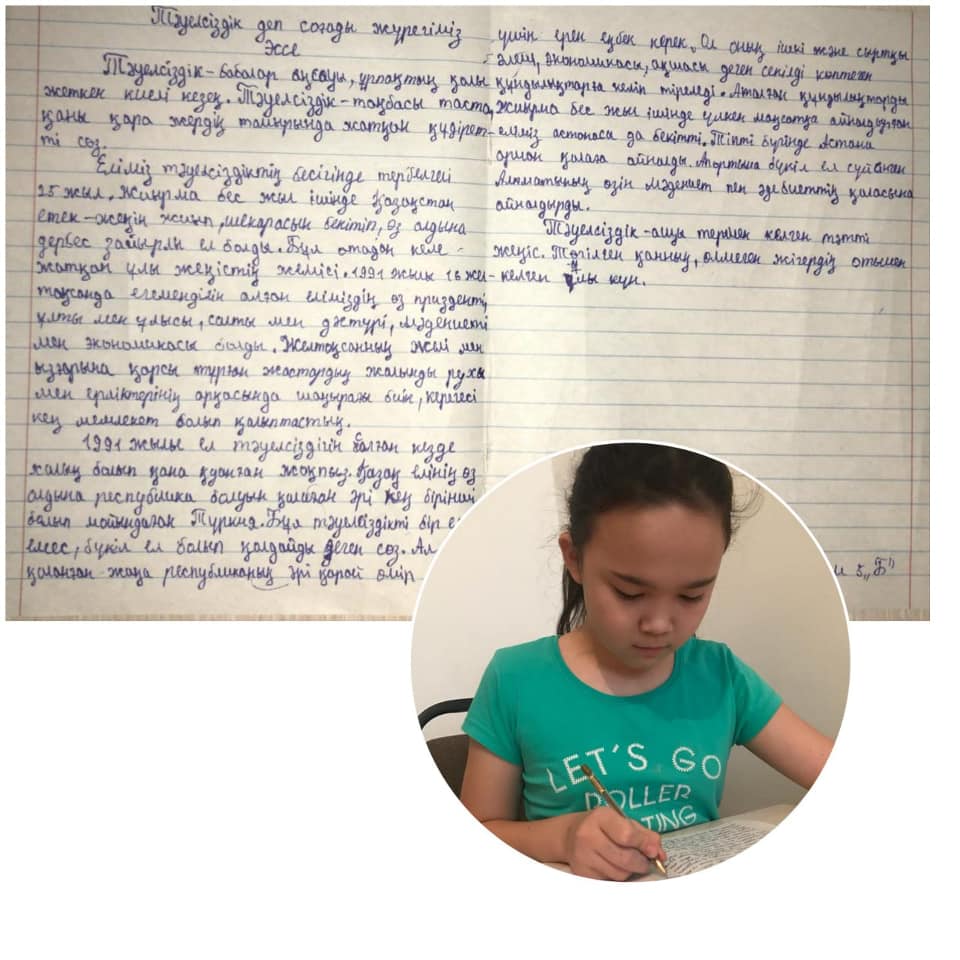 Тәуелсіздік деп соғады жүрегіміз
Эссе
Тәуелсіздік - бабалар аңсауы, ұрпақтың қолы
жеткен киелі кезең. Тәуелсіздік - таңбасы таста,
қаны қара жердің тамырында жатқан құдірет-
ті сөз.
Еліміз тәуелсіздіктің бесігінде тербелгелі
25 жыл. Жиырма бес жыл ішінде Қазақстан
етек-жеңін жиып, шекарасын бекітіп, өз алдына
дербес зайырлы ел болды. Бұл отадан келе-
жатқан ұлы жеңістің жемісі. 1991 жылы 16 жел-
тоқсанда егемендігін алған еліміздің өз призденті,
ұлты мен ұлысы, салты мен дәстүрі, мәдениеті
мен экономикасы болды. Желтоқсанның желі мен
ызғарына қарсы тұрған жастардың жалынды рухы
мен ерліктерінің арқасында шаңырағы биік, керегесі
кең мемлекет болып қалыптастық.
1991 жылы ел тәуелсіздігін алған кезде
халық болып қана қуанған жоқпыз. Қазақ елінің өз
алдына республика болуын қалаған әрі ең бірінші
болып мойындаған Түркия. Бұл тәуелсіздікті бір
емес, бүкіл ел болып қолдайды деген сөз. Ал
қаланған жаңа республиканың әрі қарай өмір
үшін ерен еңбек керек. Ол оның ішкі және сыртқы
әлемі, экономикасы, ақшасы деген секілді көптеген
құндылықтарға келіп тіреледі. Аталған құндылықтарды
жиырма бес жыл ішінде үлкен мақсатқа айналдырған
еліміз астанаса да бекітті. Тіпті бүгінде Астана
арман қалаға айналды. Апортына бүкіл ел сүйінген
Алматының өзін мәдениет пен әдебиеттің қаласына
айналдырды.
Тәуелсіздік - ащы термен келген тәтті
жеңіс. Төгілген қанның, өлмеген жігердің отымен
келген ұлы күн.
5 "Б"
LET'S GO
ROLLER